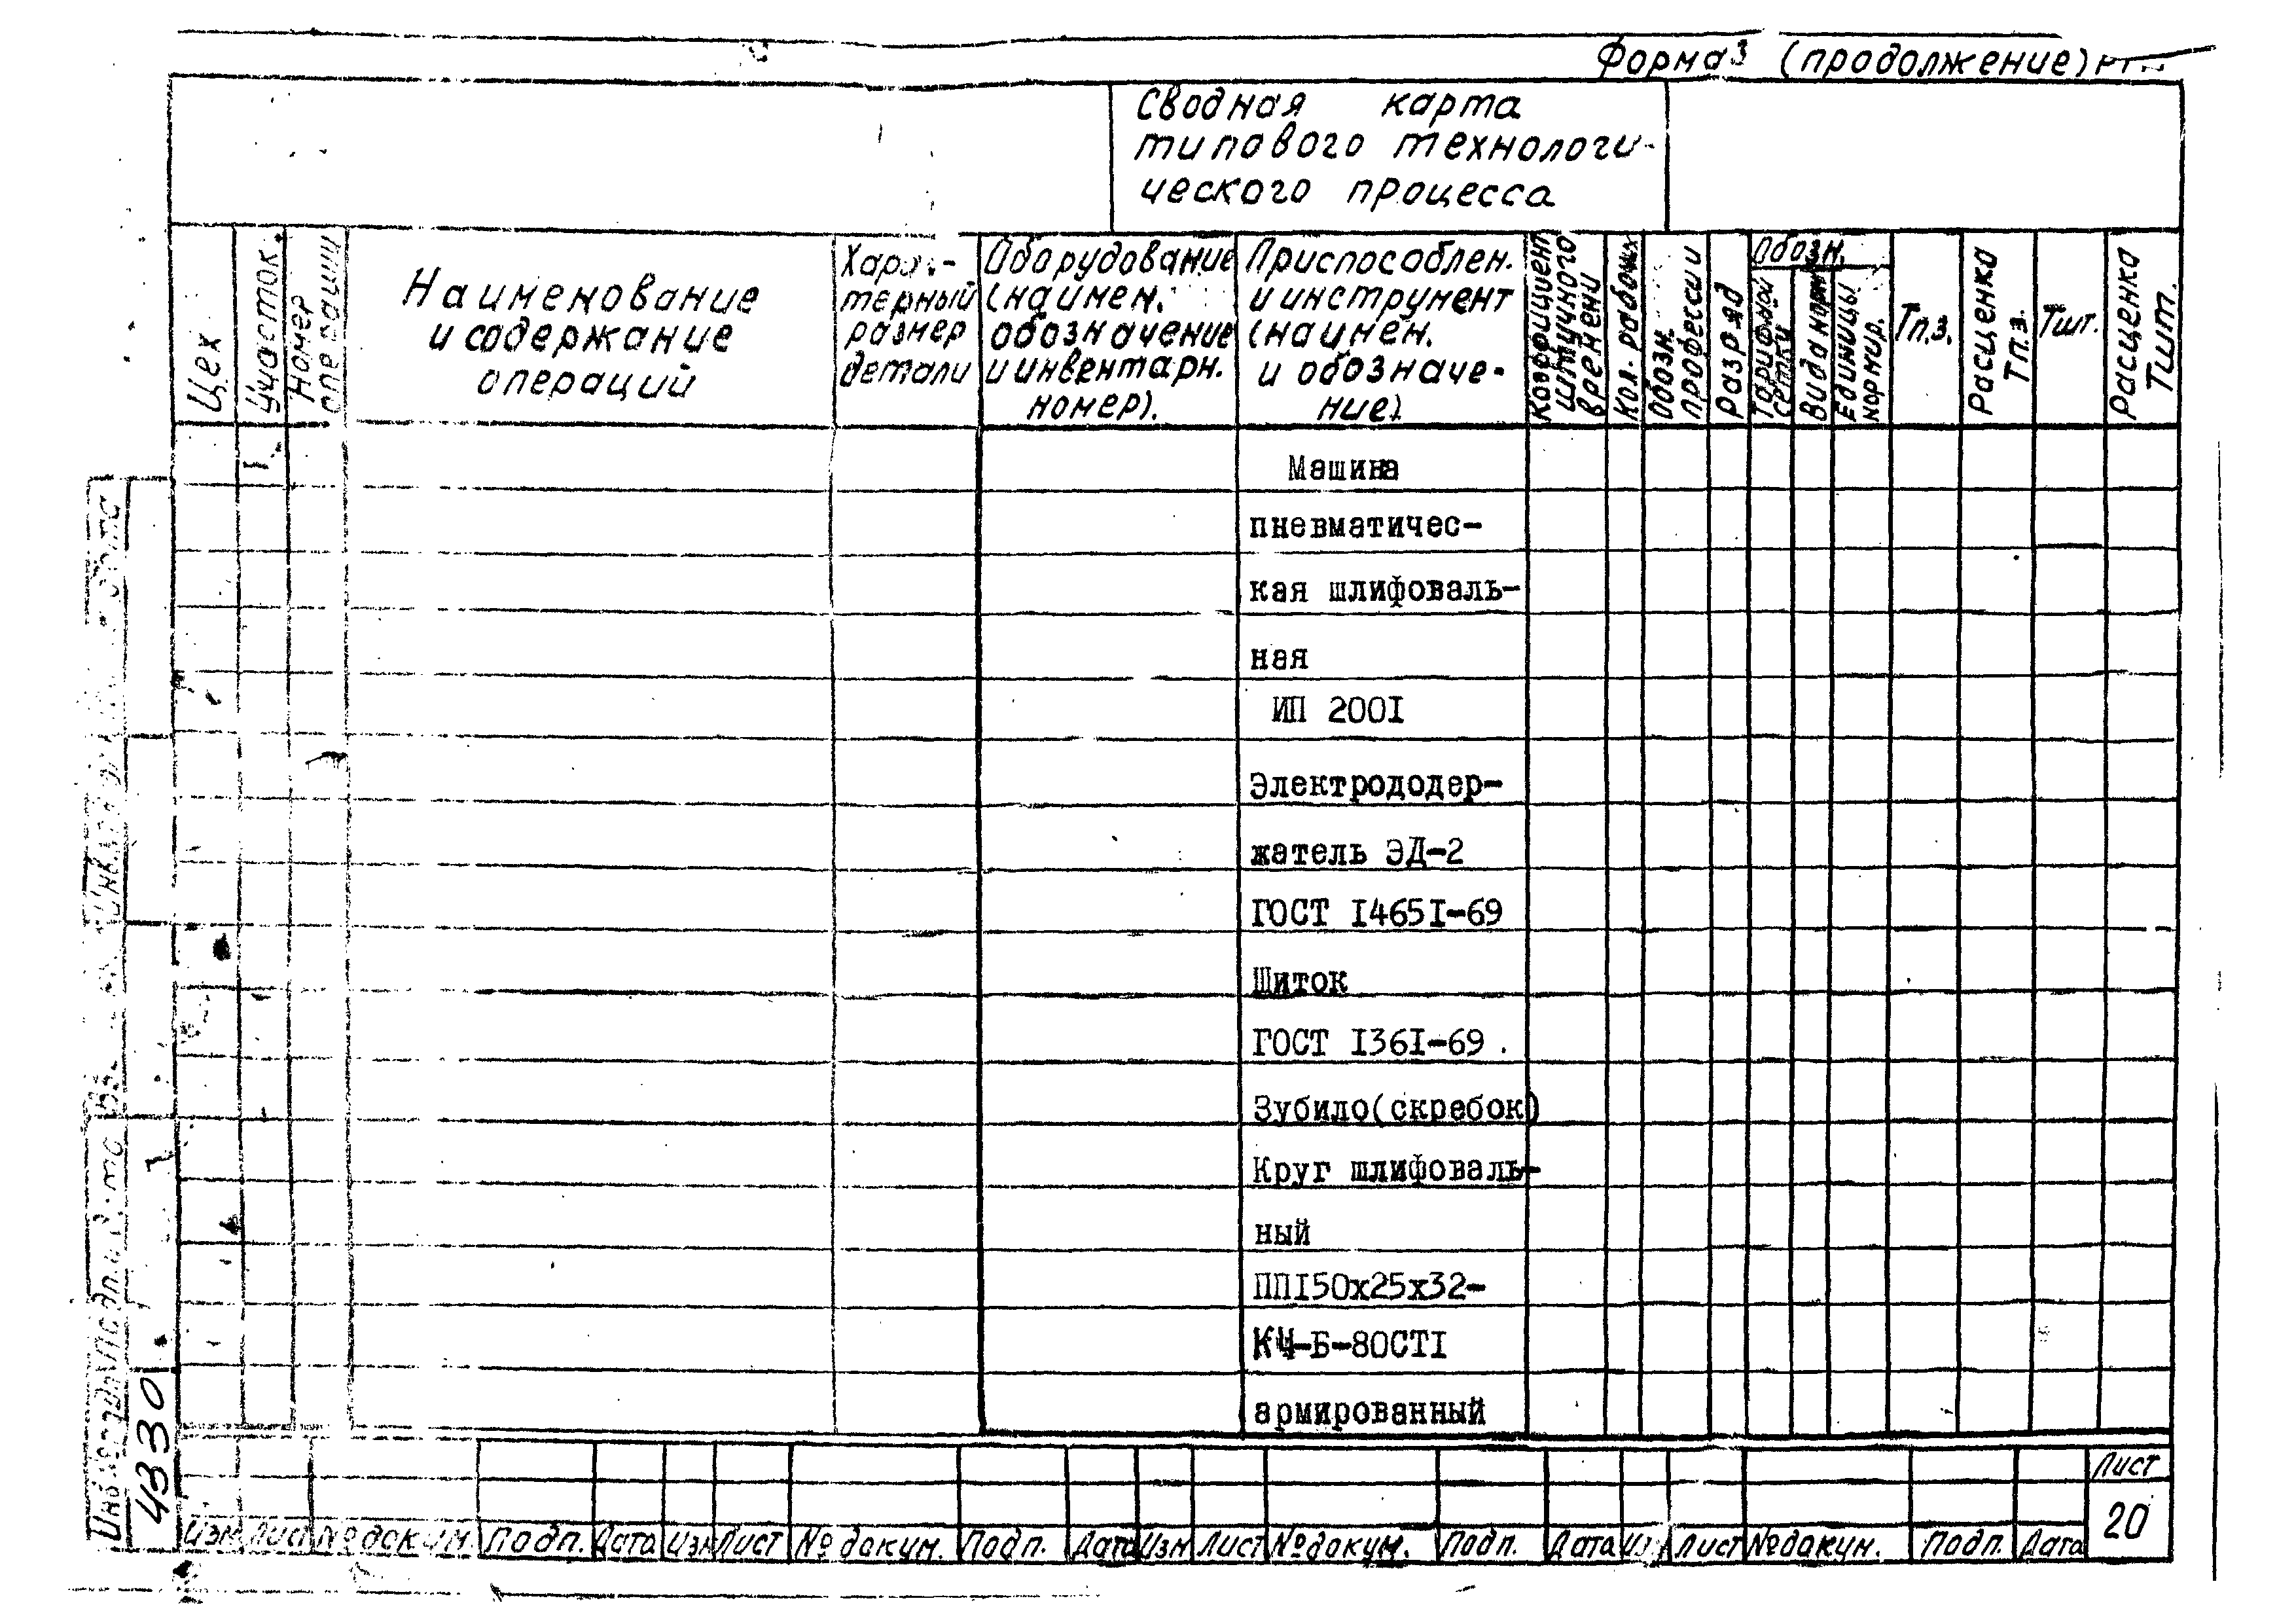 Форма 3 (продолжение)
Сводная карта
типового технологи-
ческого процесса
Цех
Участок.
Номер
операции
Наименование
и содержание
операций
Харак-
терный
размер
детали
Оборудование
(наимен.
обозначение
и инвентарн.
номер).
Приспособлен.
и инструмент
(наимен.
и обозначе-
ние)
Коэффициент
штучного
времени
Кол. рабочих
Обозн.
профессии
Разряд
Обозн.
Тарифной
сетки
Вида норм
Единицы
нормир.
Тп.з.
Расценка
Тп.з.
Тшт.
Расценка
Тшт.
Машина
пневматичес-
кая шлифоваль-
ная
ИП 200I
Электрододер-
жатель ЭД-2
ГОСТ I465I-69
Шиток
ГОСТ I36I-69
Зубило(скребок)
Круг шлифоваль-
ный
ППI50х25х32-
КЧ-Б-80СТI
армированный
Инв. № подл.
4330
Изм Лист № докум. Подп. Дата Изм Лист № докум. Подп. Дата Изм Лист № докум. Подп. Дата Изм Лист № докум. Подп. Дата
Лист
20